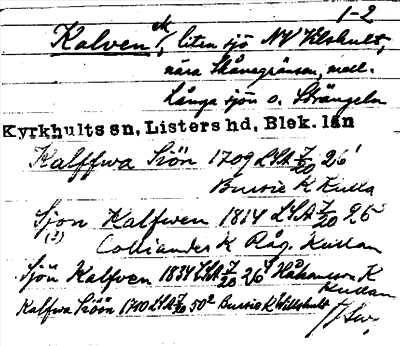 1-2
Kalven sk/, liten sjö NV Vilshult,
nära Skånegränsen, mell.
Långa sjön o. Strängeln
Kyrkhults sn, Listers hd, Blek. län
Kalffwa Siön 1709 LSA I/20 26¹
Bursie K Kulla
Sjon Kalfwen 1814 LSA I/20 26⁵
(?) Colliander K Råg. Kullan
Sjön Kalfven 1834 LSA I/20 26⁸ Håkansson K
Kullan
Kalfwa Siöön 1710 LSA I/20 50² Bursie K Willshult